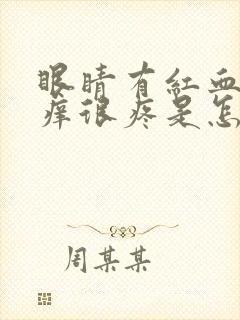 眼睛有红血
痒很疼是怎
周某某